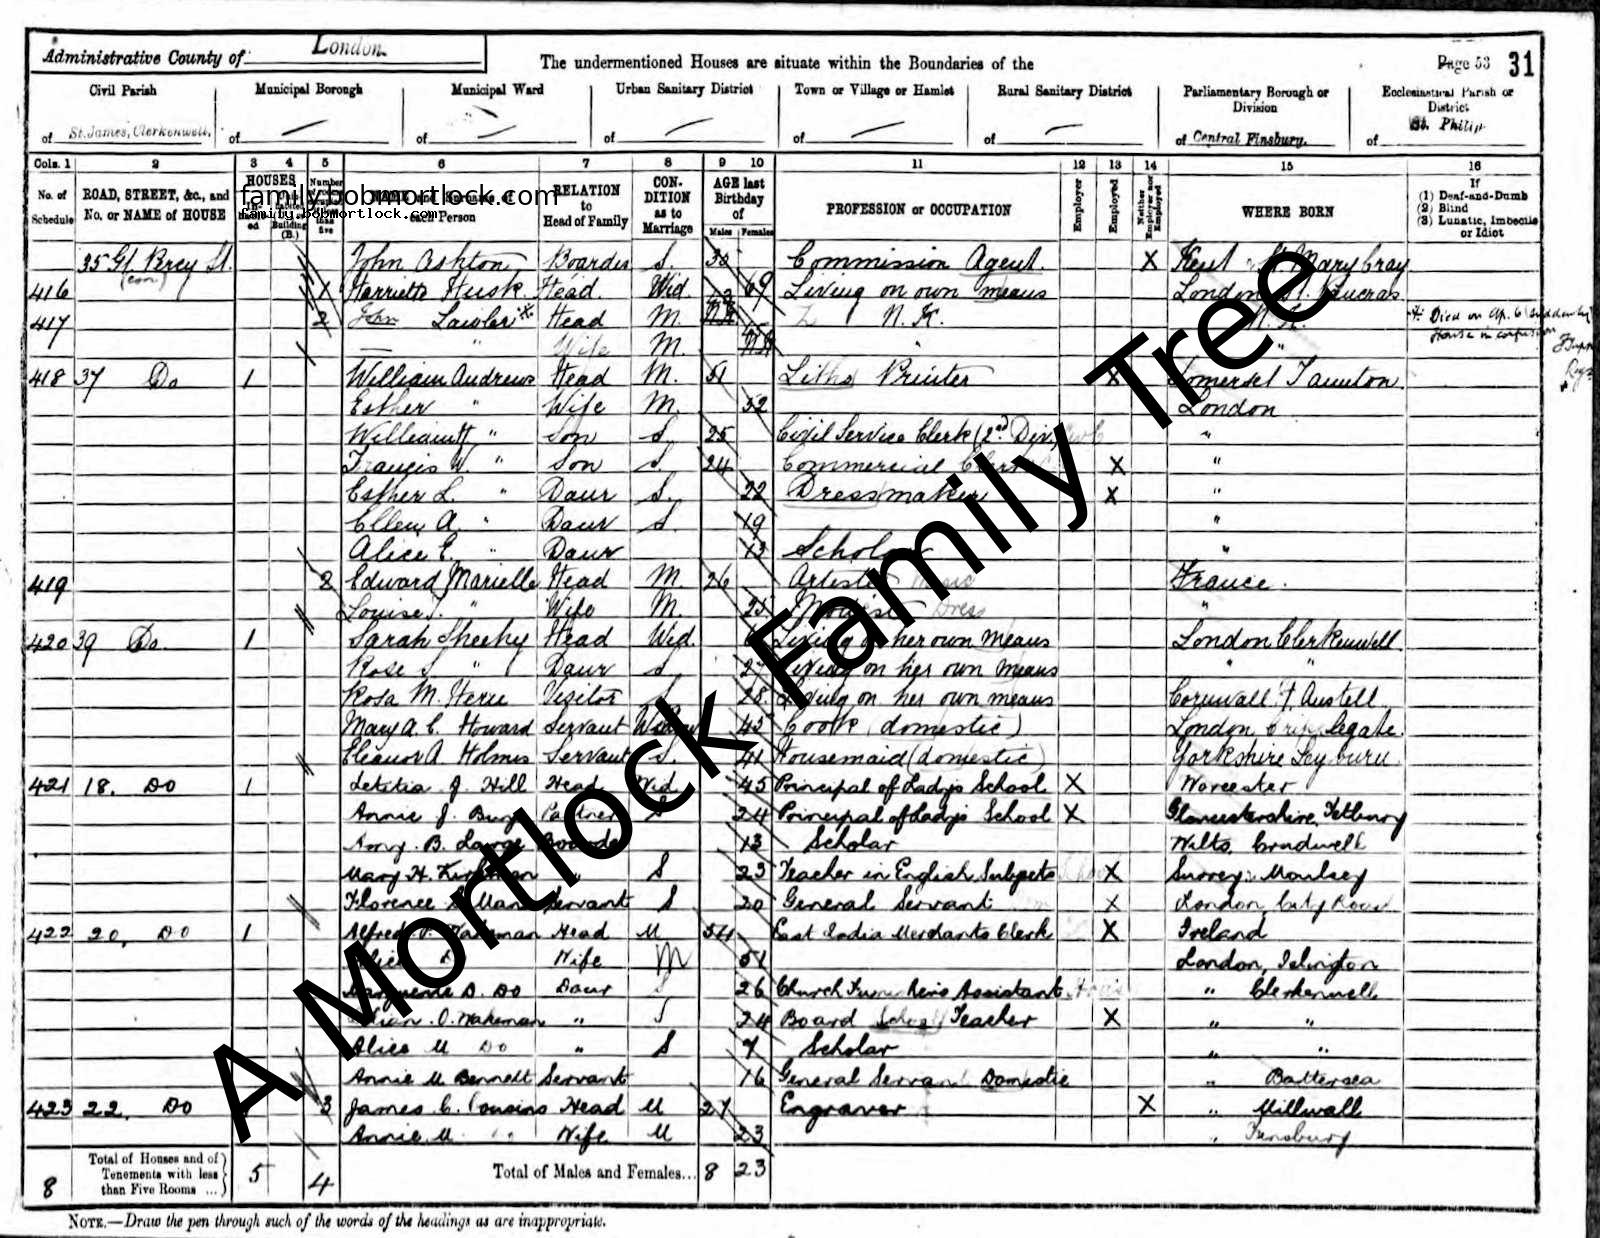 Administrative County of London
The undermentioned Houses are situate within the Boundaries of the
Page 53 31
Civil Parish Municipal Borough Municipal Ward Urban Sanitary District Town or Village or Hamlet Rural Sanitary District Parliamentary Borough or Division Ecclesiastical Parish or District
of St. James, Clerkenwell. of of of of of of Central Finsbury. of St. Philip
Cols. 1 2 3 4 5 6 7 8 9 10 11 12 13 14 15 16
No. of Schedule ROAD, STREET, &c., and No. or NAME of HOUSE HOUSES each Person RELATION to Head of Family CONDITION as to Marriage AGE last Birthday of Males Females PROFESSION or OCCUPATION Employer Employed Neither Employer nor Employed WHERE BORN If (1) Deaf-and-Dumb (2) Blind (3) Lunatic, Imbecile or Idiot
family.bobmortlock.com
family.bobmortlock.com
35 Gt Percy St. John Ashton Boarder S. Commission Agent. X Kent St Mary Cray
416 Harriette Husk Head Wid. 69 Living on own means London St. Pancras
417 2 John Lawler Head M. N.K. N.K. Died on Ap. 6 suddenly
" Wife M. " " House in confusion
418 37 Do 1 William Andrews Head M. 51 Litho Printer X Somerset Taunton
Esther " Wife M. 52 London
William H " Son S. 25 Civil Service Clerk (2nd Div) "
Francis W. " Son S. 24 Commercial Clerk X "
Esther L. " Daur S. 22 Dressmaker X "
Ellen A. " Daur S. 19 "
Alice E. " Daur 13 Scholar "
419 2 Edward Marielle Head M 26 Artiste Music France.
Louise " Wife M. 25 Modiste Dress "
420 39 Do 1 Sarah Sheehy Head Wid. Living on her own Means London Clerkenwell
Rose S " Daur S 27 Living on her own means " "
Rosa M. Visitor S 28 Living on her own means Cornwall St Austell
Mary A. C. Howard Servant Widow 45 Cook (domestic) London Cripplegate.
Eleanor A Holmes Servant S. 41 Housemaid (domestic) Yorkshire Leyburn
421 18. Do 1 Letitia J. Hill Head Wid. 45 Principal of Ladys School X Worcester
Annie J. Partner S 24 Principal of Ladys School X Gloucestershire, Tetbury
Amy. B. Large Boarder 13 Scholar Wilts, Crudwell
Mary H. " S 23 Teacher in English Subjects X Surrey: Moulsey
Florence Servant S 20 General Servant X London, City Road
422 20, Do 1 Alfred Wakeman Head M 54 East India Merchants Clerk X Ireland
Wife M 51 London, Islington
Marguerite D. Do Daur S 26 Church Assistant " Clerkenwell
O. Wakeman " S 24 Board School Teacher X " "
Alice M Do " S 7 Scholar " "
Annie M Bennett Servant 16 General Servant Domestic " Battersea
423 22, Do 3 James C. Cousins Head M 27 Engraver X " Millwall
Annie M. " Wife M 23 " Finsbury
8 Total of Houses and of Tenements with less than Five Rooms ... 5 4 Total of Males and Females... 8 23
NOTE.—Draw the pen through such of the words of the headings as are inappropriate.
A Mortlock Family Tree